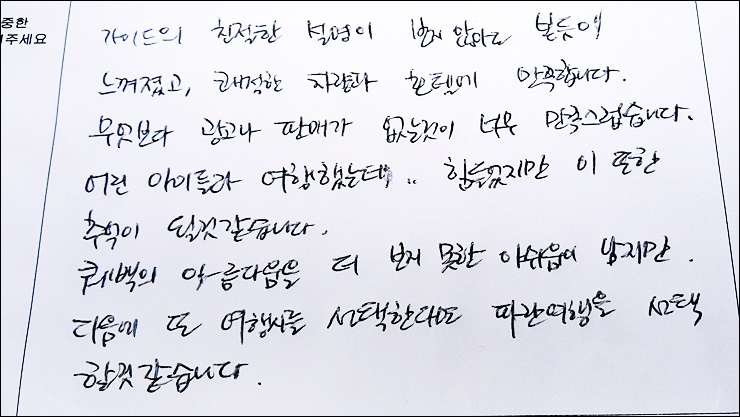 중한
1주세요
가이드의 친절한 설명이 보지 않아도 본듯이
느껴졌고, 쾌적한 차량과 호텔에 만족합니다.
무엇보다 광고나 판매가 없는것이 너무 만족스럽습니다.
어린 아이들과 여행했는데.. 힘들었지만 이 또한
추억이 될것같습니다.
퀘백의 아름다움을 더 보지 못한 아쉬움이 남지만.
다음에 또 여행사를 선택한다면 파란여행을 선택
할것 같습니다.